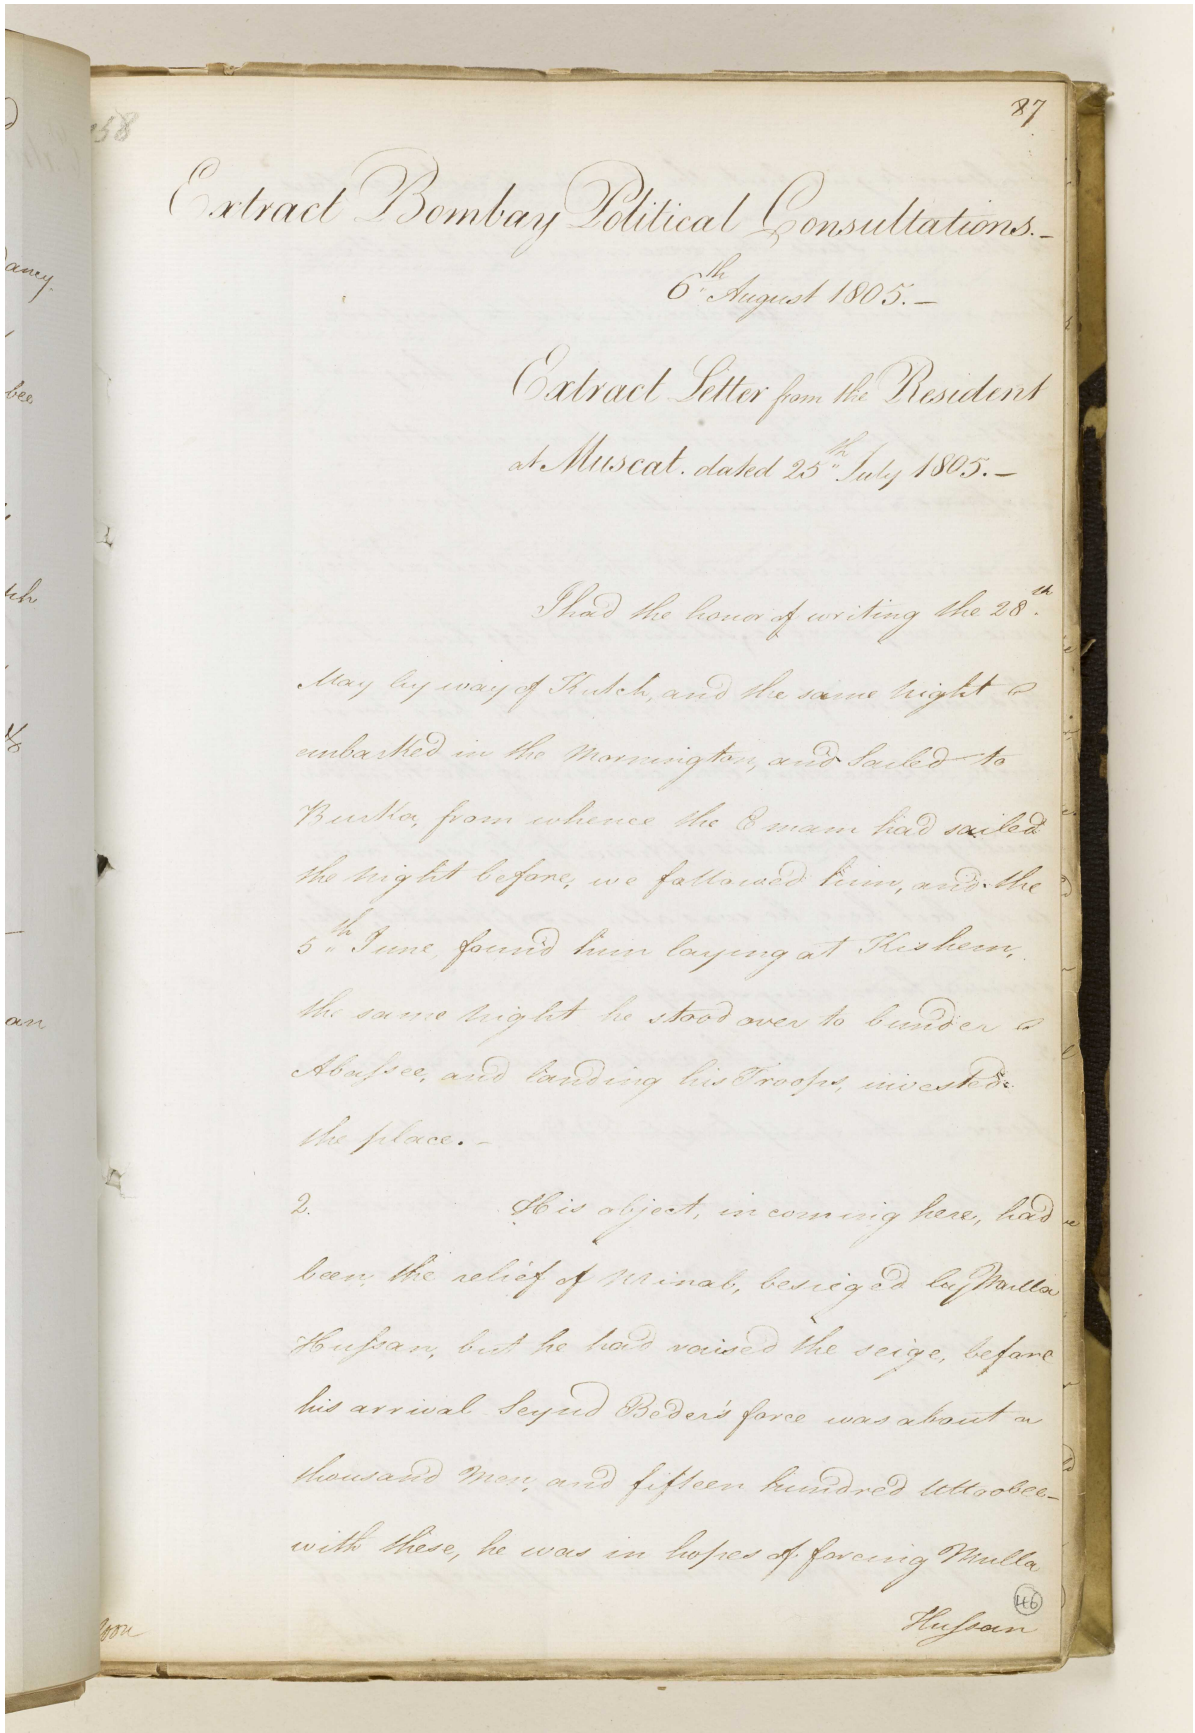 87
58
Extract Bombay Political Consultations.—
6th August 1805.—
Extract Letter from the Resident
at Muscat. dated 25th July 1805.—
I had the honor of writing the 28th
May by way of Kutch, and the same night
embarked in the Mornington, and Sailed to
Burka, from whence the Emam had sailed
the night before, we followed him, and the
5th June, found him laying at Kishem,
the same night he stood over to bunder
Abassee, and landing his Troops, invested
the place.—
2. His object, in coming here, had
been, the relief of Minab, besieged by Mulla
Hussan, but he had raised the seige, before
his arrival Seyud Beder's force was about a
thousand Men, and fifteen hundred Uttoobee—
with these, he was in hopes of forcing Mulla
46
Hussan